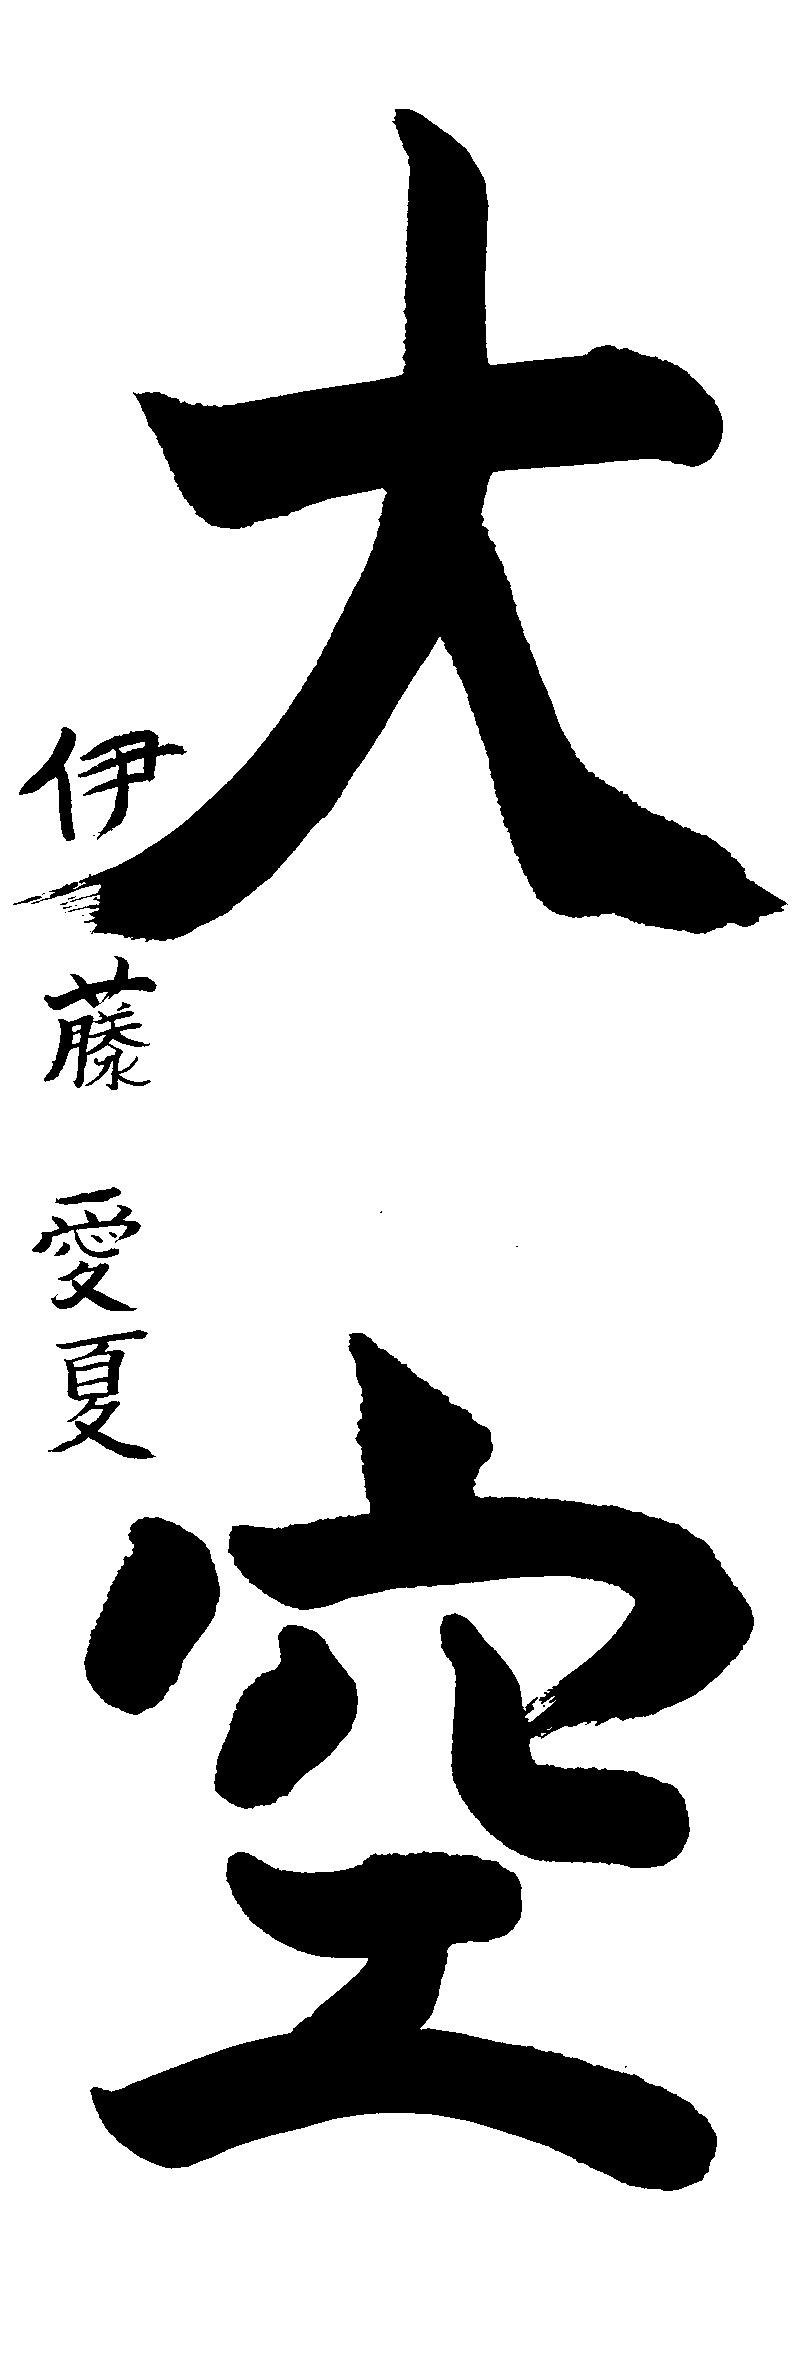 大空
伊藤 愛夏